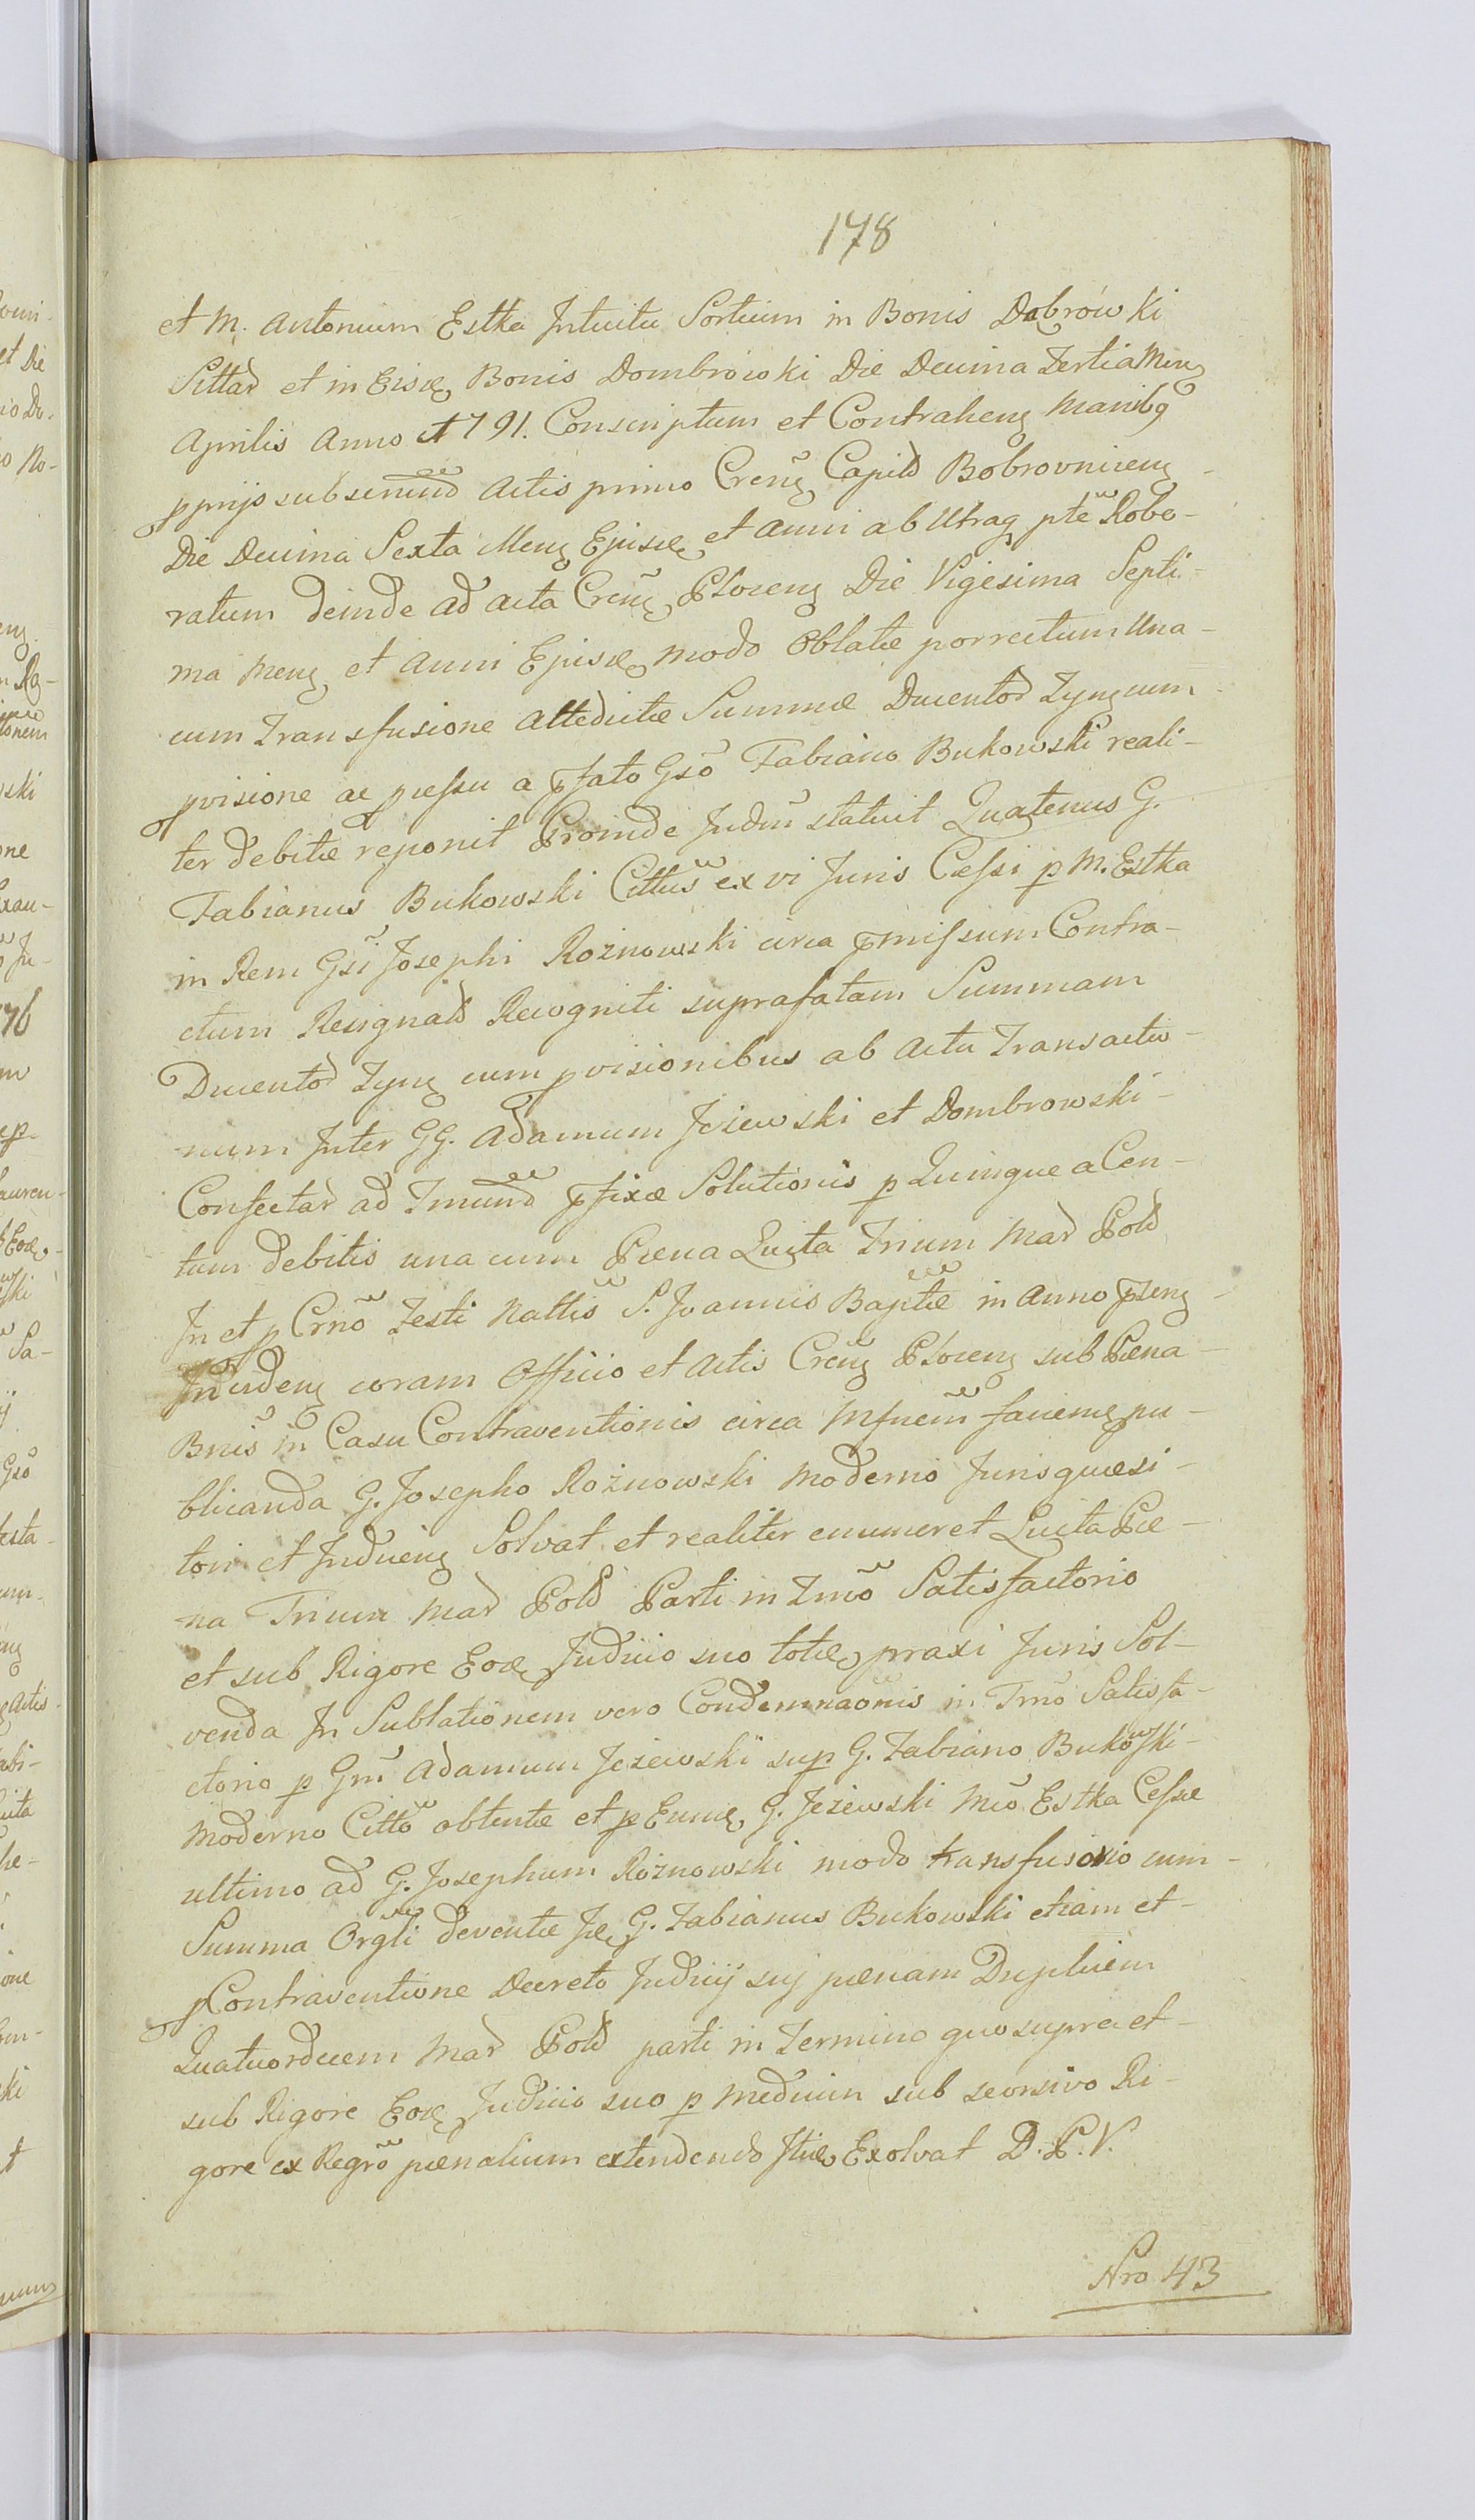 178
et M. Antonium Estka Intuitu Sortium in Bonis Dąbrówki
Sittar et in Eisdę Bonis Dombrowki Die Decima Tertia Menȝ
Aprilis Anno 1791. Conscriptum et Contrahenȝ Manibꝰ
pprijs subscriund Actis primo Crenȝ Capitł Bobrovnicenȝ
Die Decima Sexta Menȝ Ejusdę et Anni ab Utraq pte Robo-
ratum deinde ad acta Crenȝ Plocenȝ Die Vigesima Septi-
ma Menȝ et Anni Ejusdę modo Oblatæ porrectum Una-
cum Transfusione Attedictæ Summæ Ducentor Tynȝ cum
pvisione ac pcessu a pfato Gso Fabiano Bukowski reali-
ter debitæ reponit Proinde Judm statuit Quatenus G.
Fabianus Bukowski Cittus ex vi Juris Cessi p M. Estka
in Rem Gsi Josephi Rożnowski circa pmissum Contra-
ctum Resignatd Recogniti suprafatam Summam
Ducentor Tynȝ cum pvisionibus ab actu Transactio-
num Inter GG. Adamum Jeżewski et Dombrowski-
Confectar ad Tmund pfixæ Solutionis p Quinque a Cen-
tum debitis una cum Pæna Lucta Trium Mar Pold
In et p Crno Festi Nattis S. Joannis Baptæ in Anno pzenȝ-
Incidenȝ coram Officio et Actis Crenȝ Plocenȝ sub Pæna
Bnis in Casu Contraventionis circa Mfnem faciemę pu-
blicanda G. Josepho Rożnowski moderno Jurisquæsi-
tori et Inducenȝ Solvat et realiter enumeret Lucta Pæ-
na Trium Mar Pold Parti in Tmo Satisfactorio
et sub Rigore Eodę Judicio suo totie, praxi Juris Sol-
venda In Sublationem vero Condemnaonis in Tmo Satisfa-
ctorio p Gm Adamum Jeżewski sup G. Fabiano Bukowski-
Moderno Citto obtentæ et p Eunde, G. Jeżewski Mco Estka Cessæ
ultimo ad G. Josephum Rożnowski modo transfusorio cum-
Summa Orgli deventæ Idę, G. Fabianus Bukowski etiam et-
p Contraventione Decreto Judicij suj pænam Duplicem
Quatuordecem Mar Pold parti in Termino quo supra et-
sub Rigore Eodę Judicio suo p medium sub seorsivo Ri-
gore ex Regro pænalium extendendo Itidę Exolvat D. P. V.
Nro 43